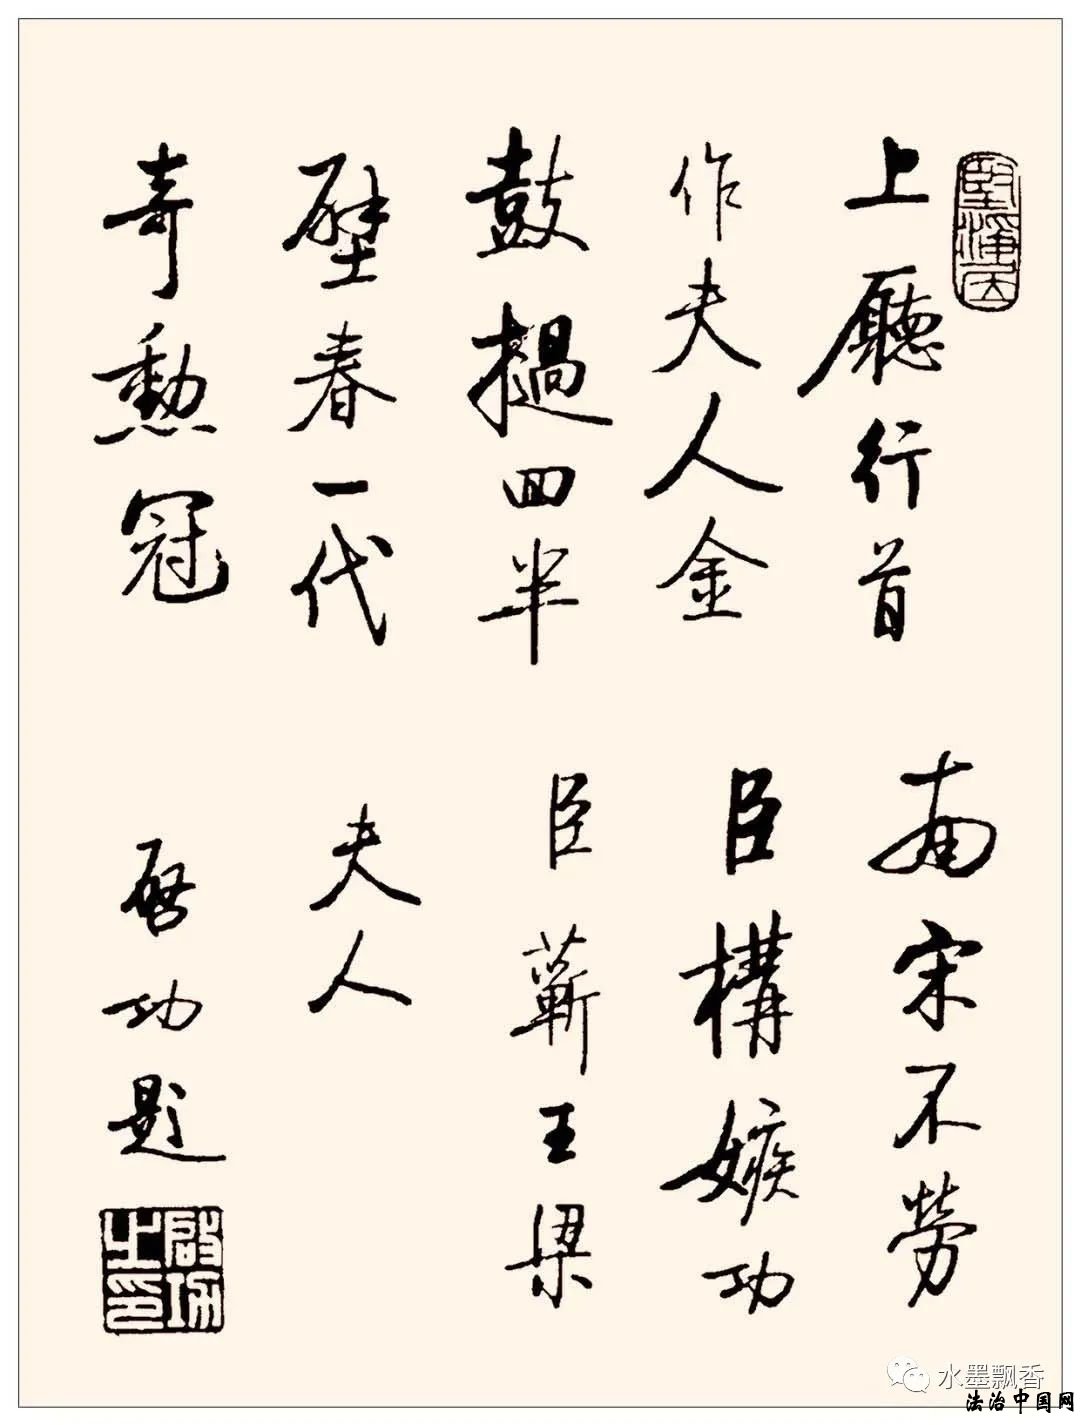 堅淨居
上廳行首
作夫人金
鼓撾回半
壁春一代
奇勳冠
南宋不勞
臣構嫉功
臣蘄王梁
夫人
啓功題
啓功之印
水墨飘香
法治中国网